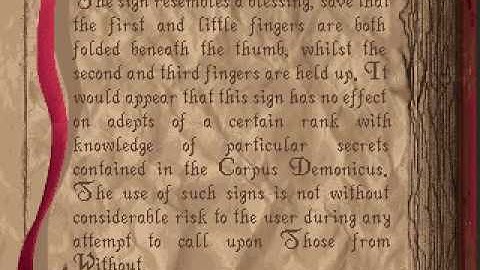 The sign resembles a blessing, save that
the first and little fingers are both
folded beneath the thumb, whilst the
second and third fingers are held up. It
would appear that this sign has no effect
on adepts of a certain rank with
knowledge of particular secrets
contained in the Corpus Demonicus.
The use of such signs is not without
considerable risk to the user during any
attempt to call upon Those from
Without